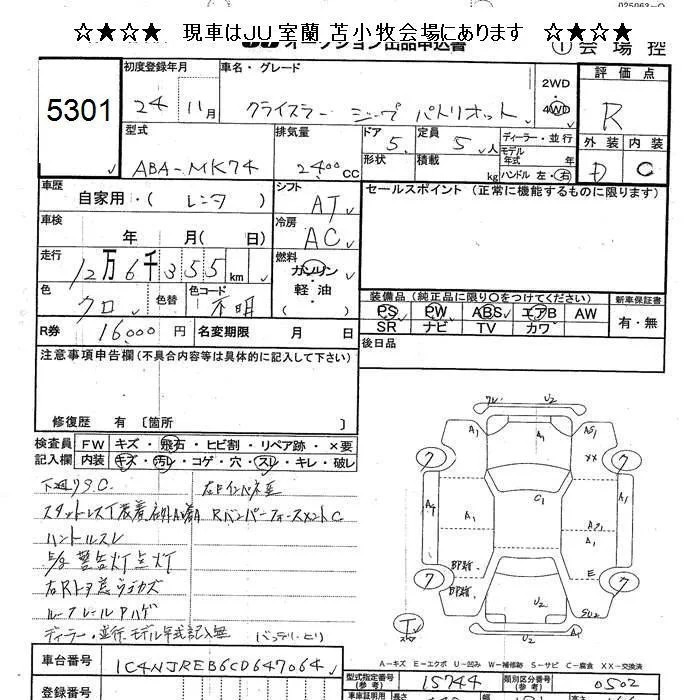 025063-0
☆★☆★ 現車はJU室蘭 苫小牧会場にあります ☆★☆★
JUオークション出品申込書
① 会場控
5301
初度登録年月
24 11月
車名・グレード
クライスラー ジープ パトリオット
2WD
4WD
評価点
R
型式
ABA-MK74
排気量
2400cc
ドア
5
定員
5人
形状
積載
kg
ディーラー・並行
モデル年式 年
ハンドル 左・右
外装 内装
D C
車歴
自家用・( レンタ )
シフト
AT
セールスポイント (正常に機能するものに限ります)
車検
年 月( 日)
冷房
AC
走行
12万6千355km
燃料
ガソリン・軽油
( )
色
クロ
色替
色コード
不明
装備品 (純正品に限り○をつけてください)
新車保証書
PS PW ABS エアB AW
SR ナビ TV カワ
有・無
R券 16,000円
名変期限 月 日
後日品
注意事項申告欄(不具合内容等は具体的に記入して下さい)
修復歴 有 〔箇所 〕
検査員記入欄
FW キズ・飛石・ヒビ割・リペア跡・×要
内装 キズ・汚レ・コゲ・穴・スレ・キレ・破レ
下廻りS.C.
スタットレス
Rバンパーフォースメント C
ハンドルスレ
警告灯点灯
ルーフレールPハゲ
ディーラー・並行、モデル年式記入無
車台番号 1C4NJREB6CD647064
登録番号
A1 A1 A1 XX
A4 C1 A1
A1
E
U2 SU2
A-キズ E-エクボ U-凹み W-補修跡 S-サビ C-腐食 XX-交換済
型式指定番号(参考) 15744
類別区分番号(参考) 0502